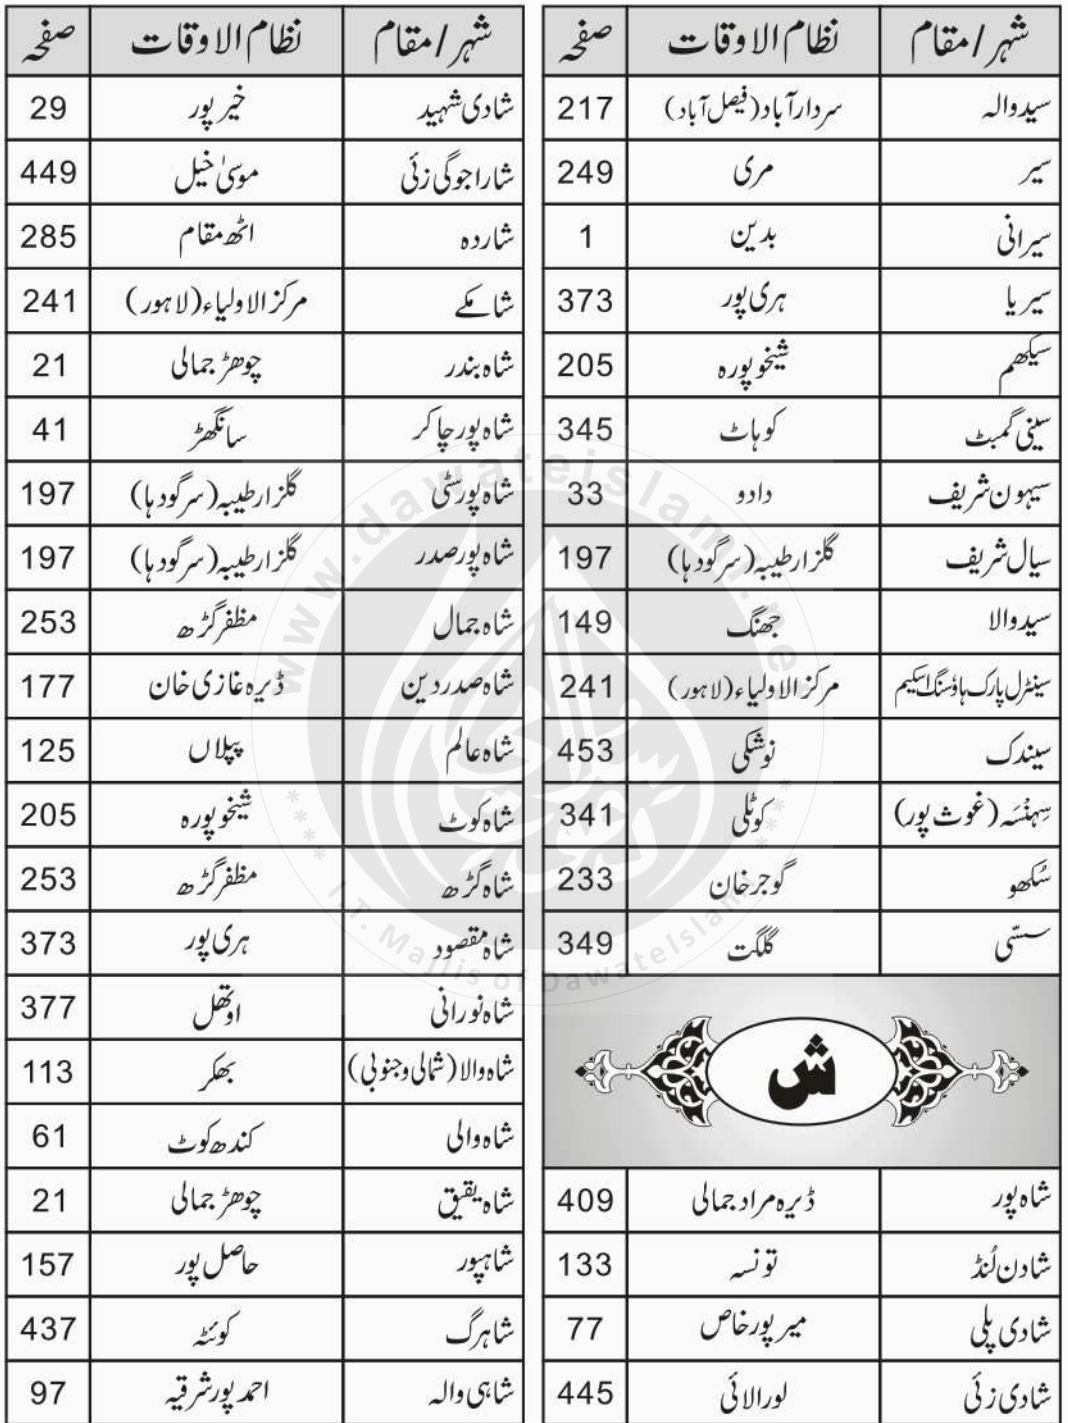 شہر/مقام نظام الاوقات صفحہ
سیدوالہ سردارآباد(فیصل آباد) 217
سیر مری 249
سیرانی بدین 1
سیریا ہری پور 373
سیکھم شیخوپورہ 205
سینی گمبٹ کوہاٹ 345
سیہون شریف دادو 33
سیال شریف گلزارطیبہ(سرگودہا) 197
سیدوالا جھنگ 149
سینٹرل پارک ہاؤسنگ اسکیم مرکزالاولیاء(لاہور) 241
سیندک نوشکی 453
سِہنْسَہ(غوث پور) کوٹلی 341
سُکھو گوجرخان 233
سسّی گلگت 349
ش
شاہ پور ڈیرہ مراد جمالی 409
شادن لُنڈ تونسہ 133
شادی پلی میرپورخاص 77
شادی زئی لورالائی 445
شہر/مقام نظام الاوقات صفحہ
شادی شہید خیرپور 29
شاراجوگی زئی موسیٰ خیل 449
شاردہ اٹھ مقام 285
شامکے مرکزالاولیاء(لاہور) 241
شاہ بندر چوھڑ جمالی 21
شاہ پورچاکر سانگھڑ 41
شاہ پورسٹی گلزارطیبہ(سرگودہا) 197
شاہ پورصدر گلزارطیبہ(سرگودہا) 197
شاہ جمال مظفرگڑھ 253
شاہ صدردین ڈیرہ غازی خان 177
شاہ عالم پپلاں 125
شاہ کوٹ شیخوپورہ 205
شاہ گڑھ مظفرگڑھ 253
شاہ مقصود ہری پور 373
شاہ نورانی اوتھل 377
شاہ والا(شمالی وجنوبی) بھکر 113
شاہ والی کندھ کوٹ 61
شاہ یقیق چوھڑ جمالی 21
شاہپور حاصل پور 157
شاہرگ کوئٹہ 437
شاہی والہ احمدپورشرقیہ 97
www.dawateislami.net
I.T. Majlis of DawateIslami